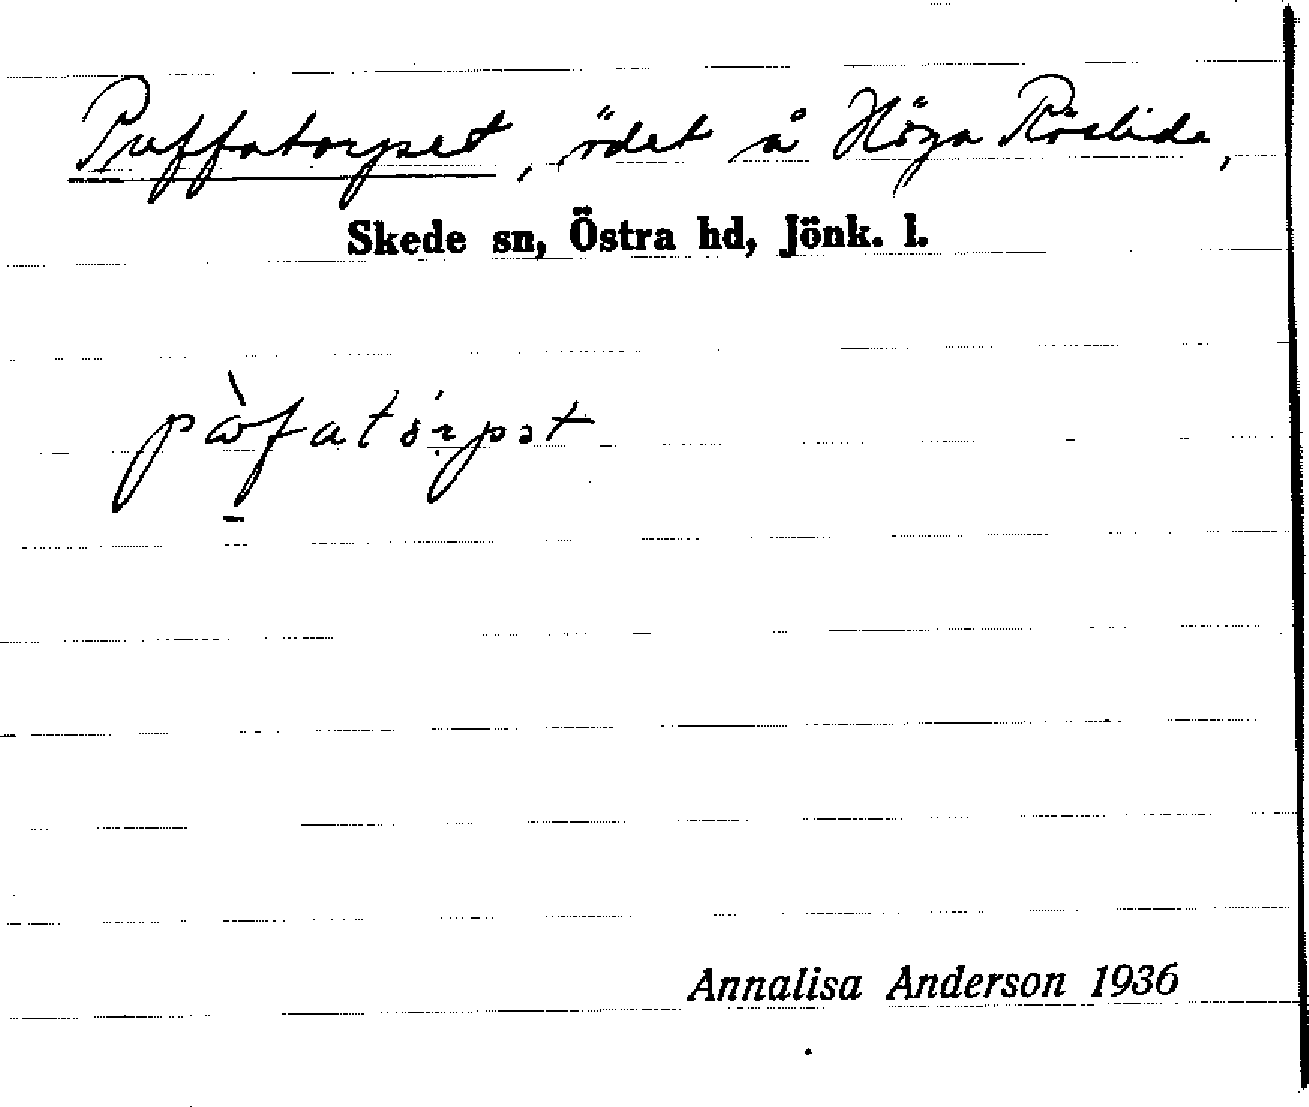 Puffatorpet, ödet å Höga Röslida,
Skede sn, Östra hd, Jönk. l.
Annalisa Anderson 1936